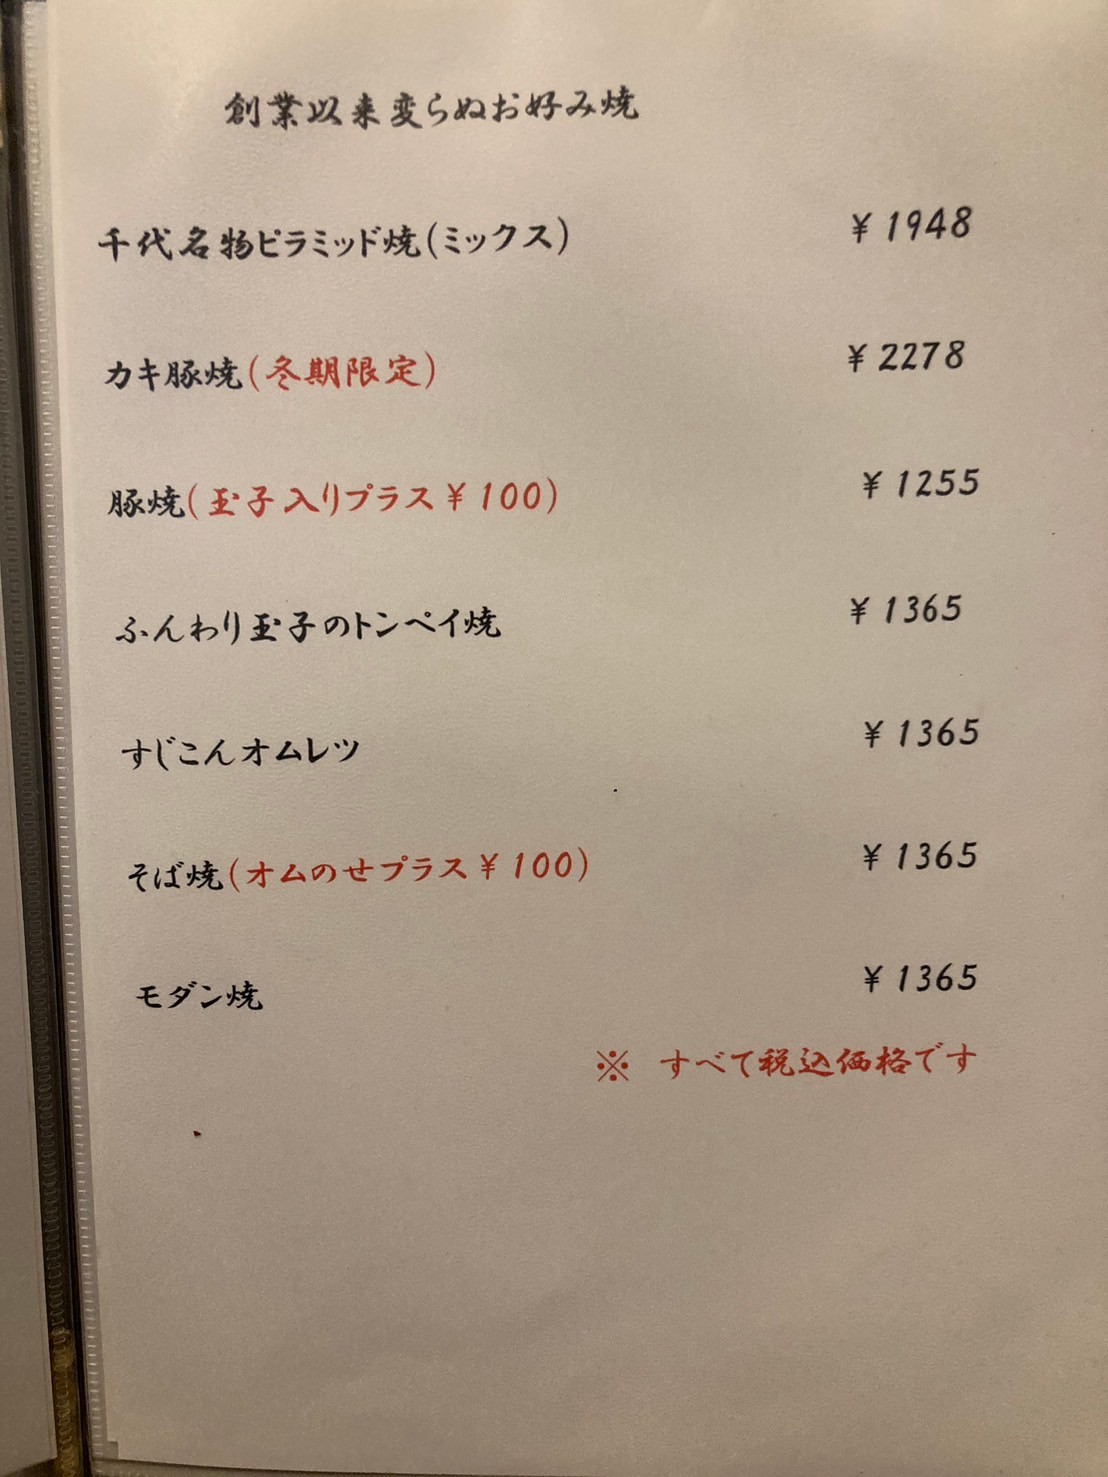 創業以来変らぬお好み焼
千代名物ピラミッド焼(ミックス) ¥1948
カキ豚焼(冬期限定) ¥2278
豚焼(玉子入りプラス¥100) ¥1255
ふんわり玉子のトンペイ焼 ¥1365
すじこんオムレツ ¥1365
そば焼(オムのせプラス¥100) ¥1365
モダン焼 ¥1365
※ すべて税込価格です